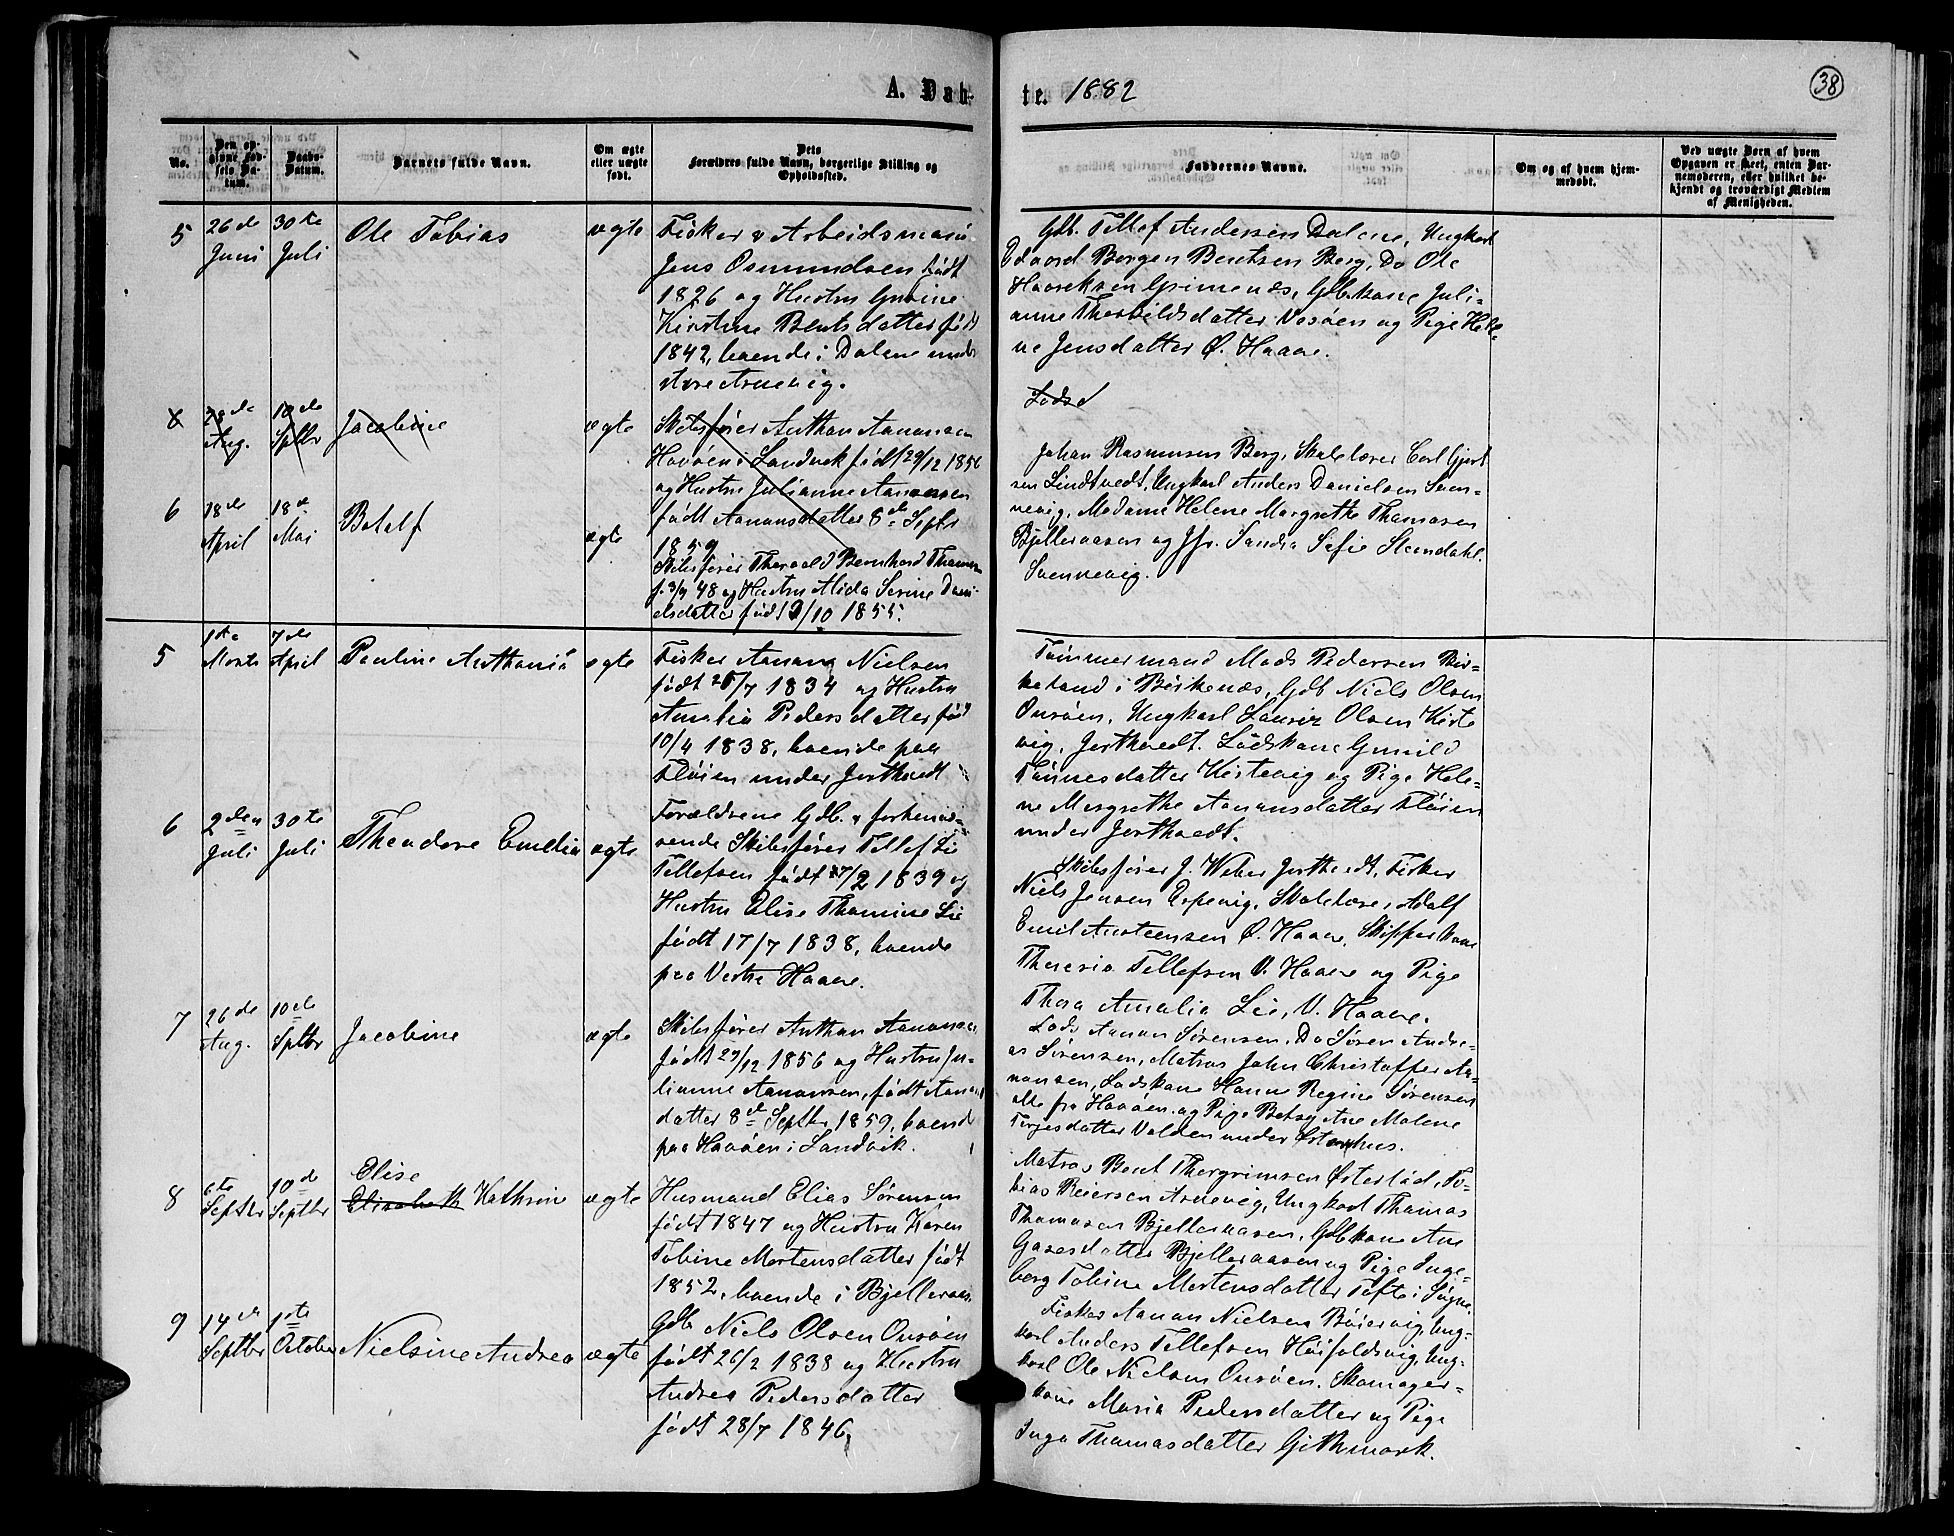 A. Døb-
te. 1882
38
No.
Den op-
givne Fød-
sels Da-
tum.
Daabs-
Datum.
Barnets fulde Navn.
Om ægte
eller uægte
født.
Dets
Forældres fulde Navn, borgerlige Stilling og
Opholdssted.
Faddernes Navne.
Om og af hvem hjem-
medøbt.
Ved uægte Børn af hvem
Opgaven er skeet, enten Bar-
nemoderen, eller hvilket be-
kjendt og troværdigt Medlem
af Menigheden.
5
26de
Juni
30te
Juli
Ole Tobias
ægte
Fisker & Arbeidsmand
Jens Osmundsen født
1826 og Hustru Gurine
Kirstine Bentsdatter født
1842, boende i Dalene under
store Arnevig.
Gdb. Tellef Andersen Dalene, Ungkarl
Edvard Bergen Bentsen Berg, Do Ole
Haaveksen Grimenæs, Gdb.kone Juli-
anne Thorkildsdatter Vesøen og Pige Hele-
ne Jensdatter Ø. Haave.
Lods
8
Aug.
10de
Sptbr
Jacobine
ægte
Skibsfører Anthon Aanonsen
Havøen i Landvik født 29/12 1856
og Hustru Julianne Aanonsen
født Aanonsdatter 8de Septbr
1859
6
18de
April
18de
Mai
Botolf
ægte
Skibsfører Thorvald Bernhard Thomsen
f. 3/9 48 og Hustru Alida Serine Dani-
elsdatter født 9/10 1855.
Johan Rasmussen Berg, Skolelærer Carl Gjert-
sen Lindtvedt, Ungkarl Anders Danielsen Sven-
nevig, Madame Helene Margrethe Thomasen
Bjelleraasen og Jfr. Sandra Sofie Steendahl
Svennevig.
5
1ste
Marts
7de
April
Pauline Anthonia
ægte
Fisker Aanon Nielsen
født 25/7 1834 og Hustru
Amalia Pedersdatter født
10/4 1838, boende paa
Fløien under Jorthvedt
Tømmermand Mads Pedersen Bir-
keland i Birkenæs, Gdb Niels Olsen
Ousøen, Ungkarl Lauriz Olsen Kiste-
vig, Jorthvedt. Lodskone Gunild
Tønnesdatter Kistevig og Pige Hele-
ne Margrethe Aanonsdatter Fløien
under Jorthvedt.
6
2den
Juli
30te
Juli
Theodore Emelia
ægte
Forældrene Gdb. & forhenvæ-
rende Skibsfører Tellef Lie
Tellefsen født 27/2 1839 og
Hustru Elise Thomine Lie
født 17/7 1838, boende
paa Vestre Haave.
Skibsfører J. Weber Jorthvedt, Fisker
Niels Jensen Espevig, Skolelærer Adolf
Emil Austeensen Ø. Haave, Skipperkone
Theresia Tellefsen V. Haave og Pige
Thora Amalia Lie, V. Haave.
7
26de
Aug.
10de
Sptbr
Jacobine
ægte
Skibsfører Anthon Aanonsen
født 29/12 1856 og Hustru Ju-
lianne Aanonsen, født Aanons-
datter 8de Septbr 1859, boende
paa Havøen i Landvik.
Lods Aanon Sørensen, Do Søren Andre-
as Sørensen, Matros John Christoffer Aa-
nonsen, Lodskone Hanne Regine Sørensen
alle fra Havøen. og Pige Betsy Ane Malene
Terjesdatter Valden under Østerhus.
8
6te
Septbr
10de
Septbr
Elise
Elisabeth Kathrine
ægte
Husmand Elias Sørensen
født 1847 og Hustru Karen
Tobine Mortensdatter født
1852, boende i Bjelleraasen
Matros Bent Thorgrimsen Østerlød, To-
bias Reiersen Arnevig, Ungkarl Thomas
Thomasen Bjelleraasen, Gdbkone Ane
Garesdatter Bjelleraasen og Pige Inge-
borg Tobine Mortensdatter Tofte i Søgne.
9
14de
Septbr
1ste
October
Nielsine Andrea
ægte
Gdb Niels Olsen Ousøen
født 26/2 1838 og Hustru
Andrea Pedersdatter
født 28/7 1846,
Fisker Aanon Nielsen Bøievig, Ung-
karl Anders Tellefsen Høifoldsvig, Ung-
karl Ole Nielsen Ousøen. Skomager-
kone Maria Pedersdatter og Pige
Inga Thomasdatter Githmark.